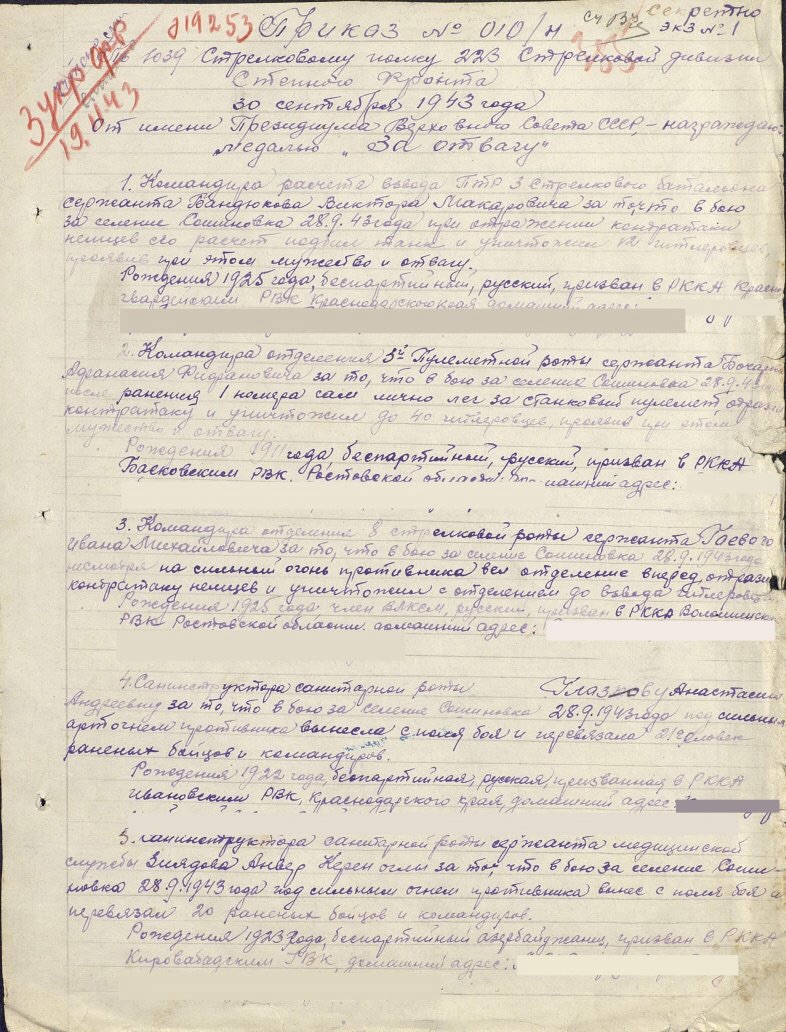 секретно
819253 Приказ № 010/н экз № 1
1039 Стрелковому полку 223 Стрелковой дивизии
3 Укр фр
19.1143
Степного Фронта
30 сентября 1943 года
От имени Президиума Верховного Совета СССР, – награждаю:
Медалью „За отвагу“
1. Командира расчета взвода ПТР 3 стрелкового батальона
сержанта Вандюкова Виктора Макаровича за то, что в бою
за селение Сошиновка 28.9.43 года при отражении контратаки
немцев его расчет подбил танк и уничтожил 12 гитлеровцев,
проявив при этом мужество и отвагу.
Рождения 1925 года, беспартийный, русский, призван в РККА Красно
гвардейским РВК Краснодарского края домашний адрес:
2. Командира отделения 3й Пулеметной роты сержанта
Афанасия за то, что в бою за селение Сошиновка 28.9.43
после ранения 1 номера сам лично лег за станковый пулемет, отразил
контратаку и уничтожил до 40 гитлеровцев, проявив при этом
мужество и отвагу.
Рождения 1911 года беспартийный, русский, призван в РККА
РВК. Ростовской домашний адрес:
3. Командира отделения 8 стрелковой роты сержанта Гаевого
Ивана Михайловича за то, что в бою за селение Сошиновка 28.9.1943 года
несмотря на сильный огонь противника вел отделение вперед, отразил
контратаку немцев и уничтожил с отделением до взвода гитлеровцев
Рождения 1925 года член ВЛКСМ, русский, призван в РККА
РВК Ростовской области. домашний адрес:
4. Санинструктора санитарной роты Глазкову Анастасию
Андреевну за то, что в бою за селение Сошиновка 28.9.1943 года под сильным
артогнем противника вынесла с поля боя и перевязала 21 человек
раненых бойцов и командиров.
Рождения 1922 года, беспартийная, русская, призванная в РККА
Ивановским РВК, Краснодарского края, домашний адрес:
5. санинструктора санитарной роты сержанта медицинской
службы Зиядова Анвер Керен оглы за то, что в бою за селение Соши-
новка 28.9.1943 года под сильным огнем противника вынес с поля боя и
перевязал 20 раненых бойцов и командиров.
Рождения 1923 года, беспартийный азербайджанец, призван в РККА
Кировабадским ГВК, домашний адрес: